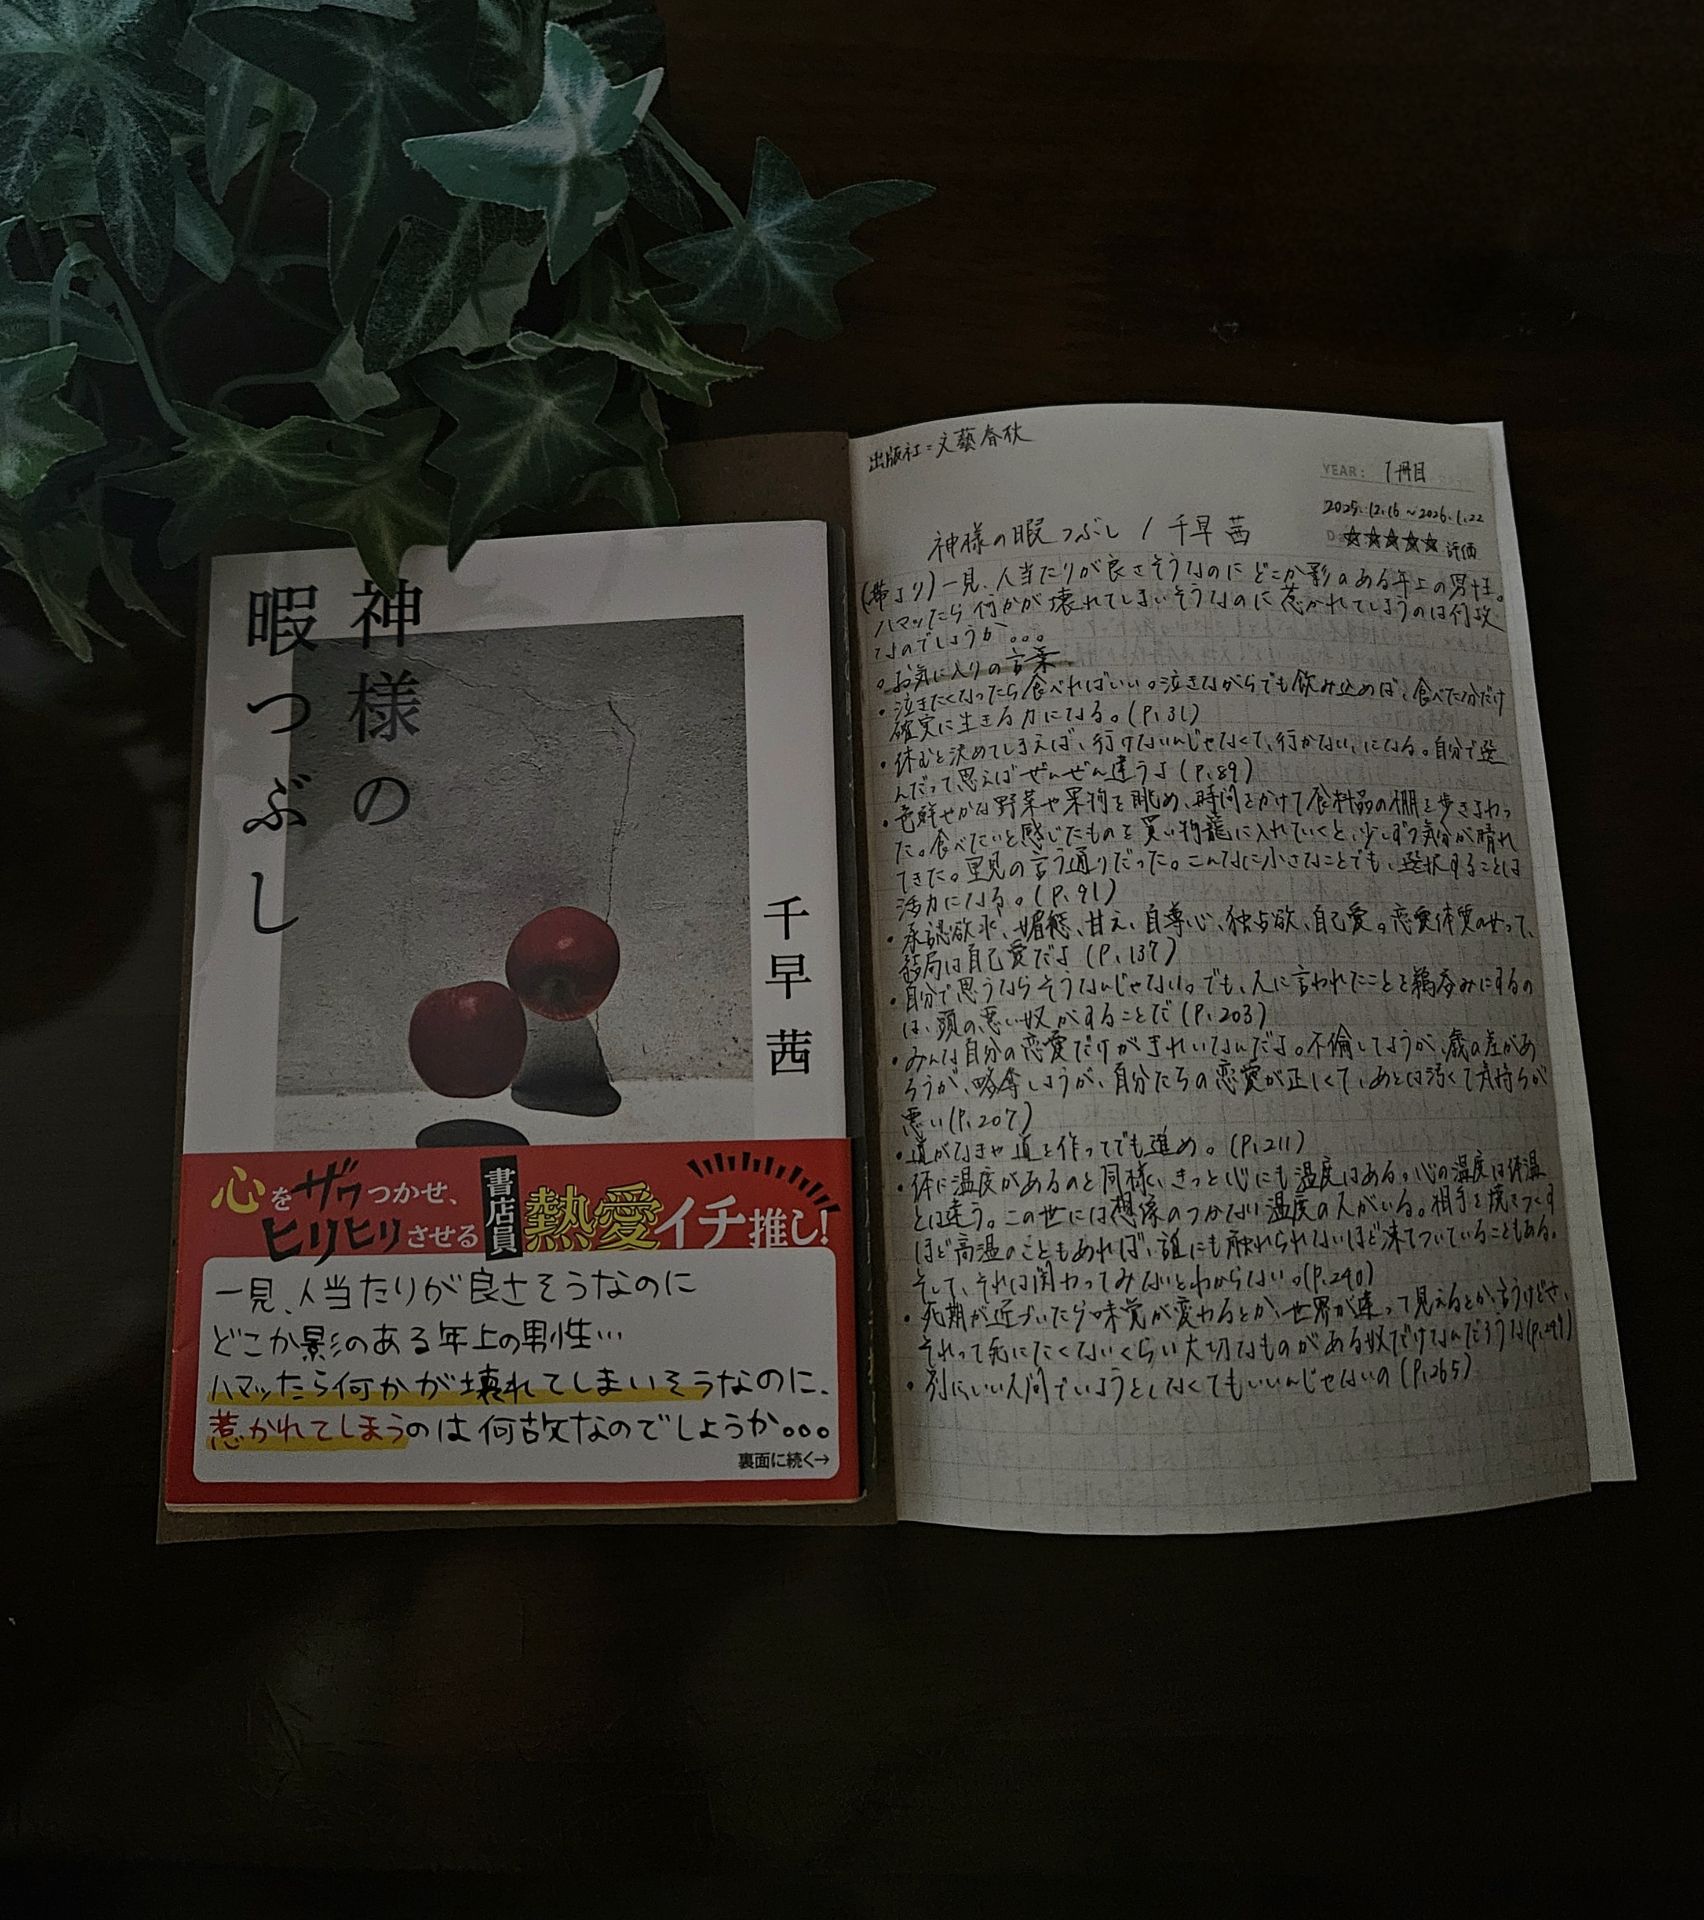 神様の
暇つぶし
千早茜
心をザワつかせ、
ヒリヒリさせる
書店員
熱愛イチ推し!
一見、人当たりが良さそうなのに
どこか影のある年上の男性…
ハマッたら何かが壊れてしまいそうなのに、
惹かれてしまうのは何故なのでしょうか。。。
裏面に続く→
出版社=文藝春秋
YEAR: 1冊目
2025.12.16~2026.1.22
☆☆☆☆☆ 評価
神様の暇つぶし / 千早茜
(帯より)一見、人当たりが良さそうなのにどこか影のある年上の男性。
ハマッたら何かが壊れてしまいそうなのに惹かれてしまうのは何故
なのでしょうか。。。
○お気に入りの言葉.
・泣きたくなったら食べればいい。泣きながらでも飲み込めば、食べた分だけ
確実に生きる力になる。(P.31)
・休むと決めてしまえば、行けないんじゃなくて、行かない、になる。自分で選
んだって思えばぜんぜん違うよ(P.89)
・色鮮やかな野菜や果物を眺め、時間をかけて食料品の棚を歩きまわっ
た。食べたいと感じたものを買い物籠に入れていくと、少しずつ気分が晴れ
てきた。里見の言う通りだった。こんなに小さなことでも、選択することは
活力になる。(P.91)
・承認欲求、媚態、甘え、自尊心、独占欲、自己愛。恋愛体質のやって、
結局は自己愛だよ(P.137)
・自分で思うならそうなんじゃない。でも、人に言われたことを鵜呑みにするの
は、頭の悪い奴がすることだ(P.203)
・みんな自分の恋愛だけがきれいなんだよ。不倫してようが、歳の差があ
ろうが、略奪しようが、自分たちの恋愛が正しくて、あとは汚くて気持ちが
悪い(P.207)
・道がなきゃ道を作ってでも進め。(P.211)
・体に温度があるのと同様、きっと心にも温度はある。心の温度は体温
とは違う。この世には想像のつかない温度の人がいる。相手を焼きつくす
ほど高温のこともあれば、誰にも触れられないほど凍てついていることもある。
そして、それは関わってみないとわからない。(P.240)
・死期が近づいたら味覚が変わるとか、世界が違って見えるとか言うけどさ、
それって死にたくないくらい大切なものがある奴だけなんだろうな
・別にいい人間でいようとしなくてもいいんじゃないの(P.265)